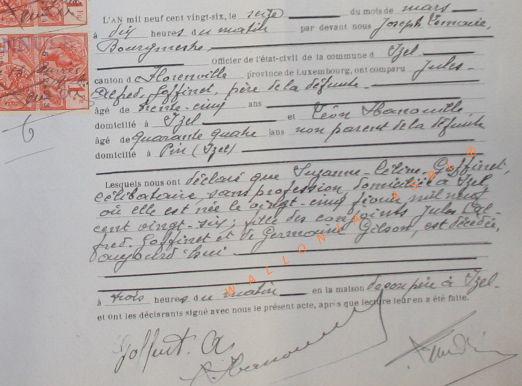 L'AN mil neuf cent vingt-six, le seize du mois de mars
à dix heures du matin par devant nous Joseph
Bourgmestre
Officier de l'état-civil de la commune d'Izel
canton de Florenville province de Luxembourg, ont comparu Jules-
Alfred Goffinet, père de la défunte
âgé de trente-cinq ans
domicilié à Izel et Léon Hanonville
âgé de quarante quatre ans non parent de la défunte
domicilié à Pin (Izel)
Lesquels nous ont déclaré que Suzanne-Céline-Goffinet,
célibataire, sans profession, domiciliée à Izel,
où elle est née le vingt-cinq mil neuf
cent vingt-six; fille des conjoints Jules Al-
fred Goffinet et de Germaine Gilson, est décédée,
aujourd'hui
à trois heures du matin en la maison de son père à Izel.
et ont les déclarants signé avec nous le présent acte, après que lecture leur en a été faite.
Goffinet. A
WALLONIE